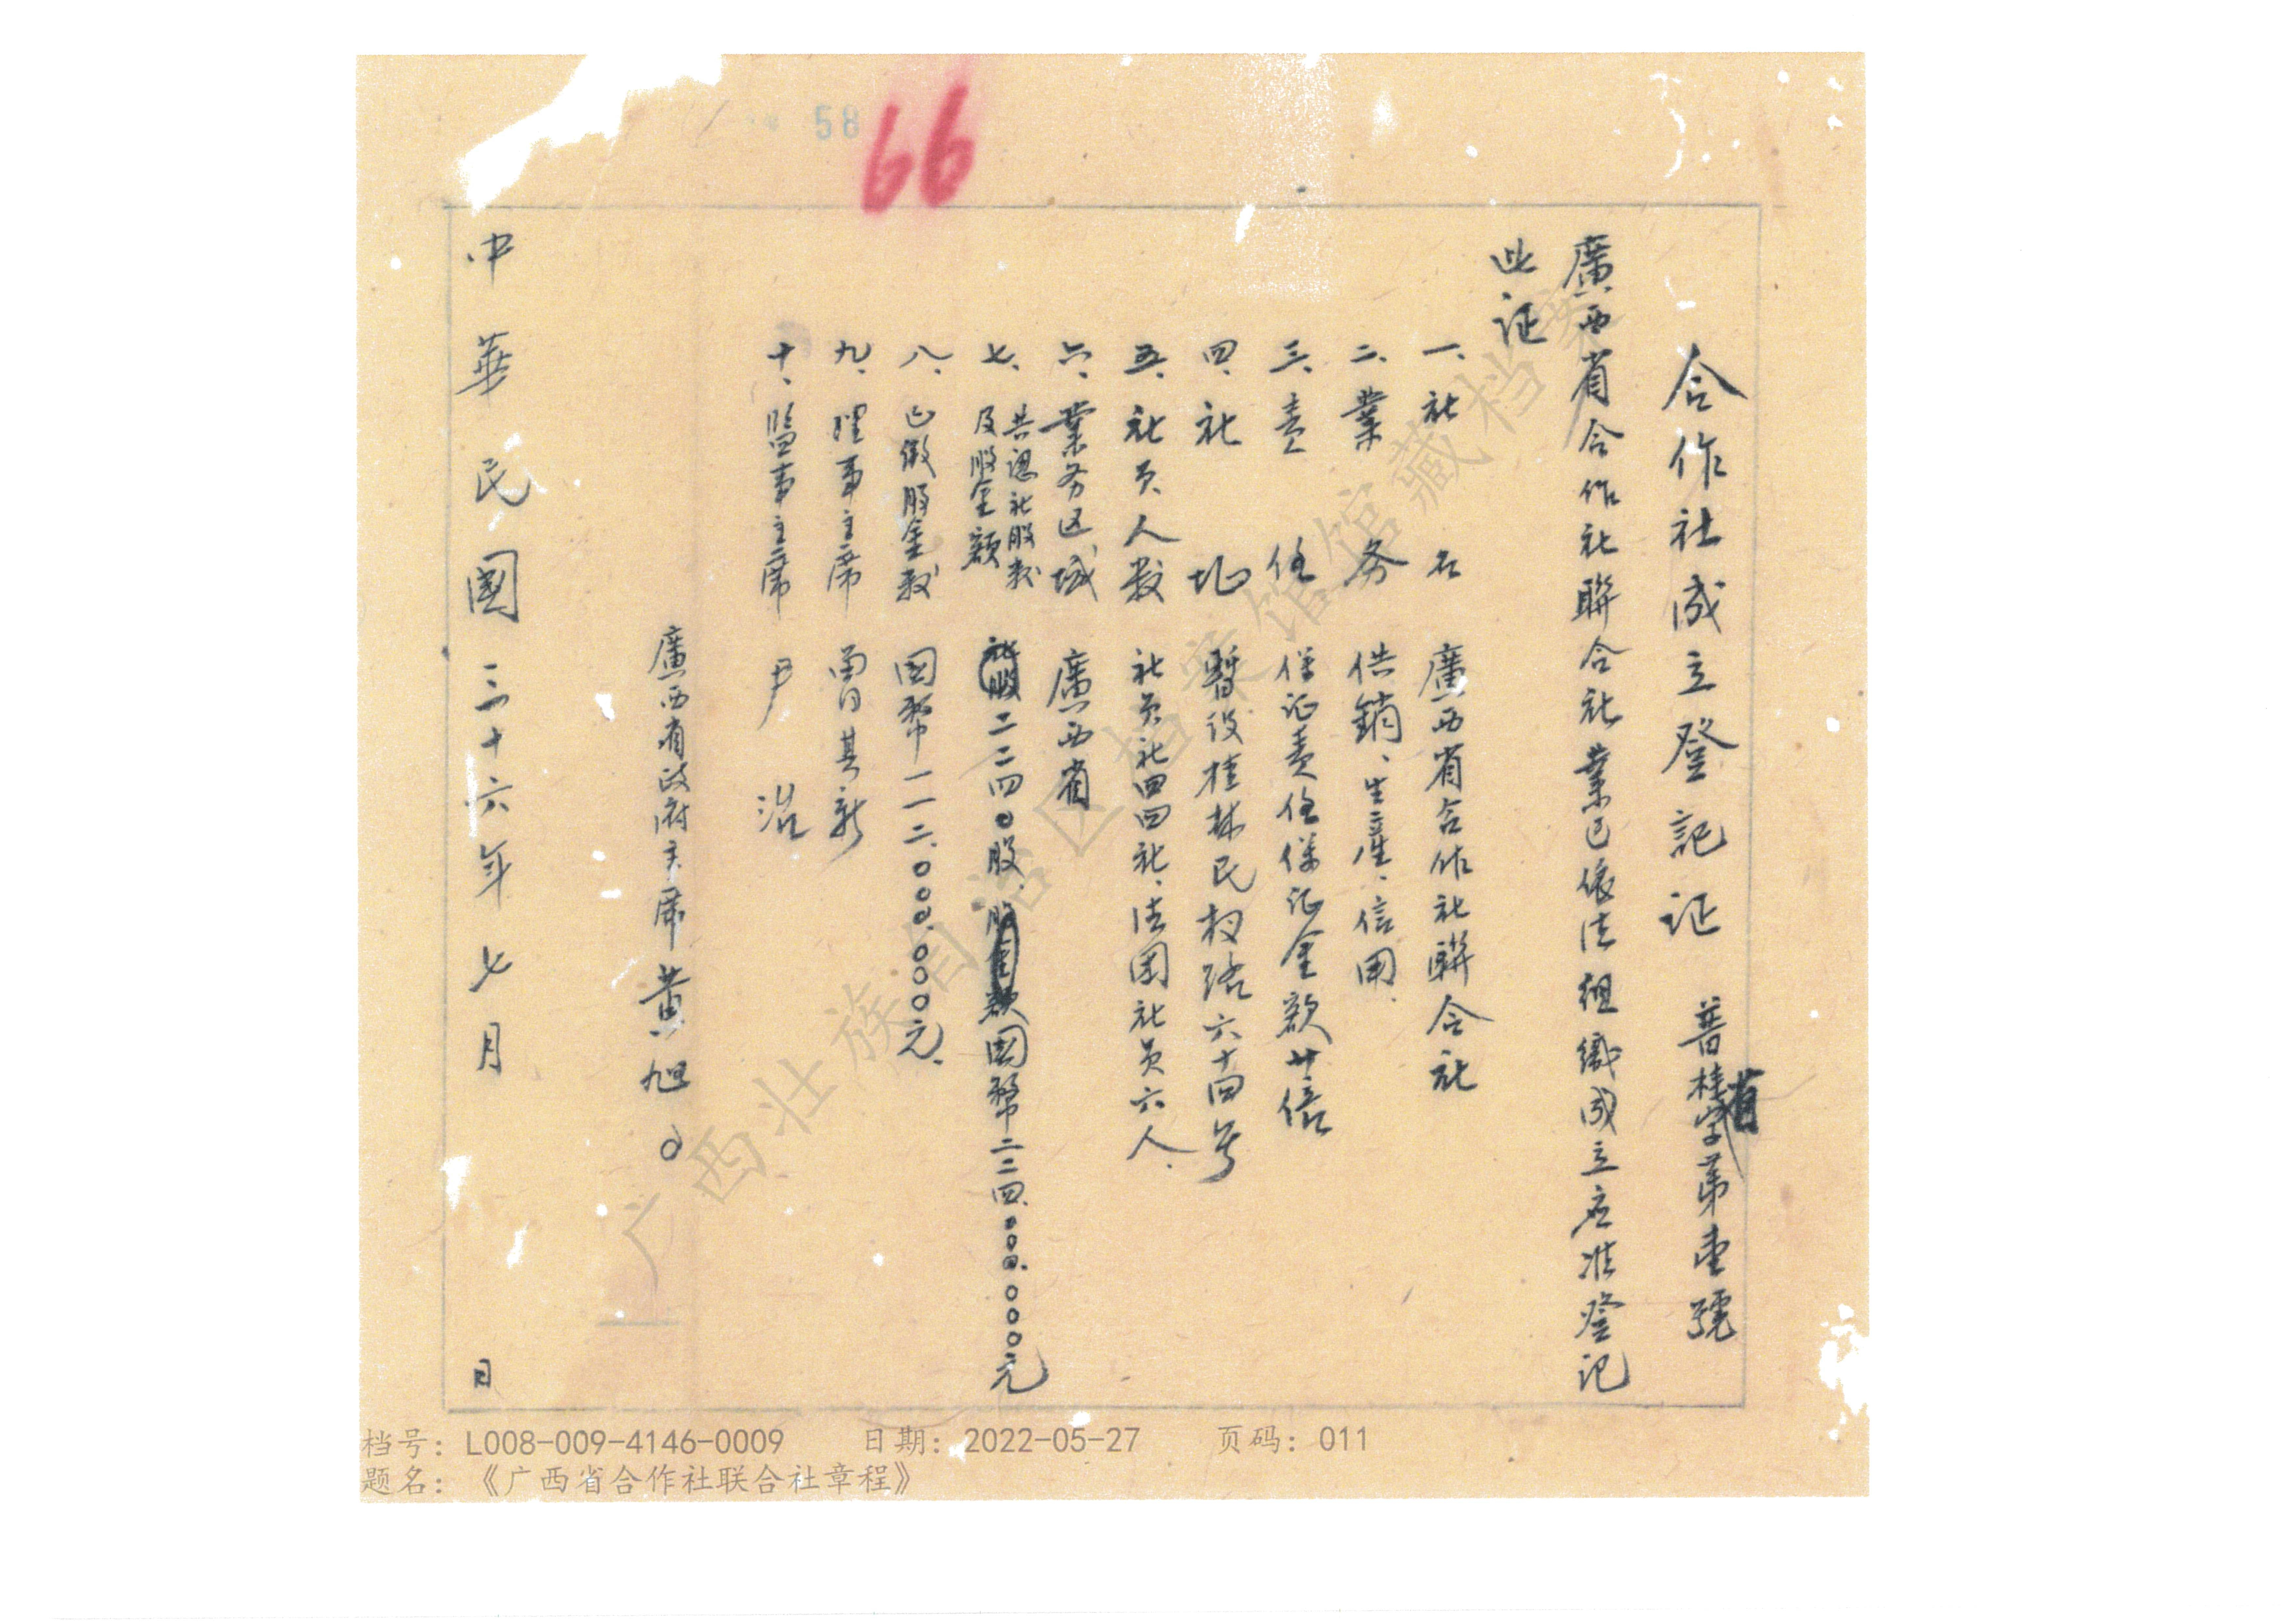 58
66
合作社成立登記证　普桂省字第壹號
廣西省合作社聯合社業已依法組織成立应准登记
此证
一、社名　廣西省合作社聯合社
二、業务　供銷、生產、信用.
三、責任　保证责任保证金額廿倍
四、社地　暫设桂林民权路六十四号
五、社员人数　社员社四四社、法团社员六人、
六、業务区域　廣西省
七、共認社股数及股金额　社股二二四〇股、股金额国幣二二四.〇〇〇.〇〇〇元
八、已缴股金数　国幣一一二.〇〇〇.〇〇〇元.
九、理事主席　曾其新
十、監事主席　尹治
廣西省政府主席黄旭〇
中華民國三十六年七月　日
广西壮族自治区档案馆馆藏档案
档号：L008-009-4146-0009　日期：2022-05-27　页码：011
题名：《广西省合作社联合社章程》